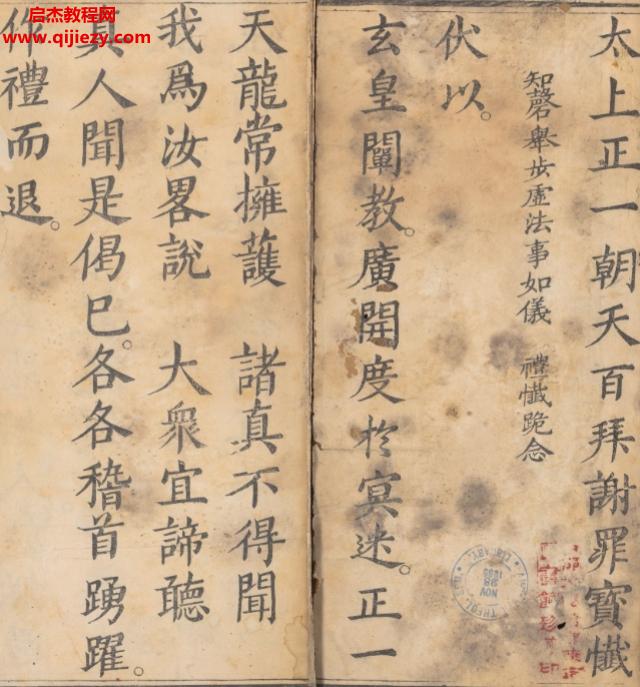 启杰教程网
www.qijiezy.com
太上正一朝天百拜謝罪寶懺
知磬舉步虛法事如儀 禮懺跪念
伏以。
玄皇闡教。廣開度於冥迷。正一
天龍常擁護 諸真不得聞
我爲汝畧說 大衆宜諦聽
真人聞是偈已。各各稽首踴躍。
作禮而退。
NOV
28